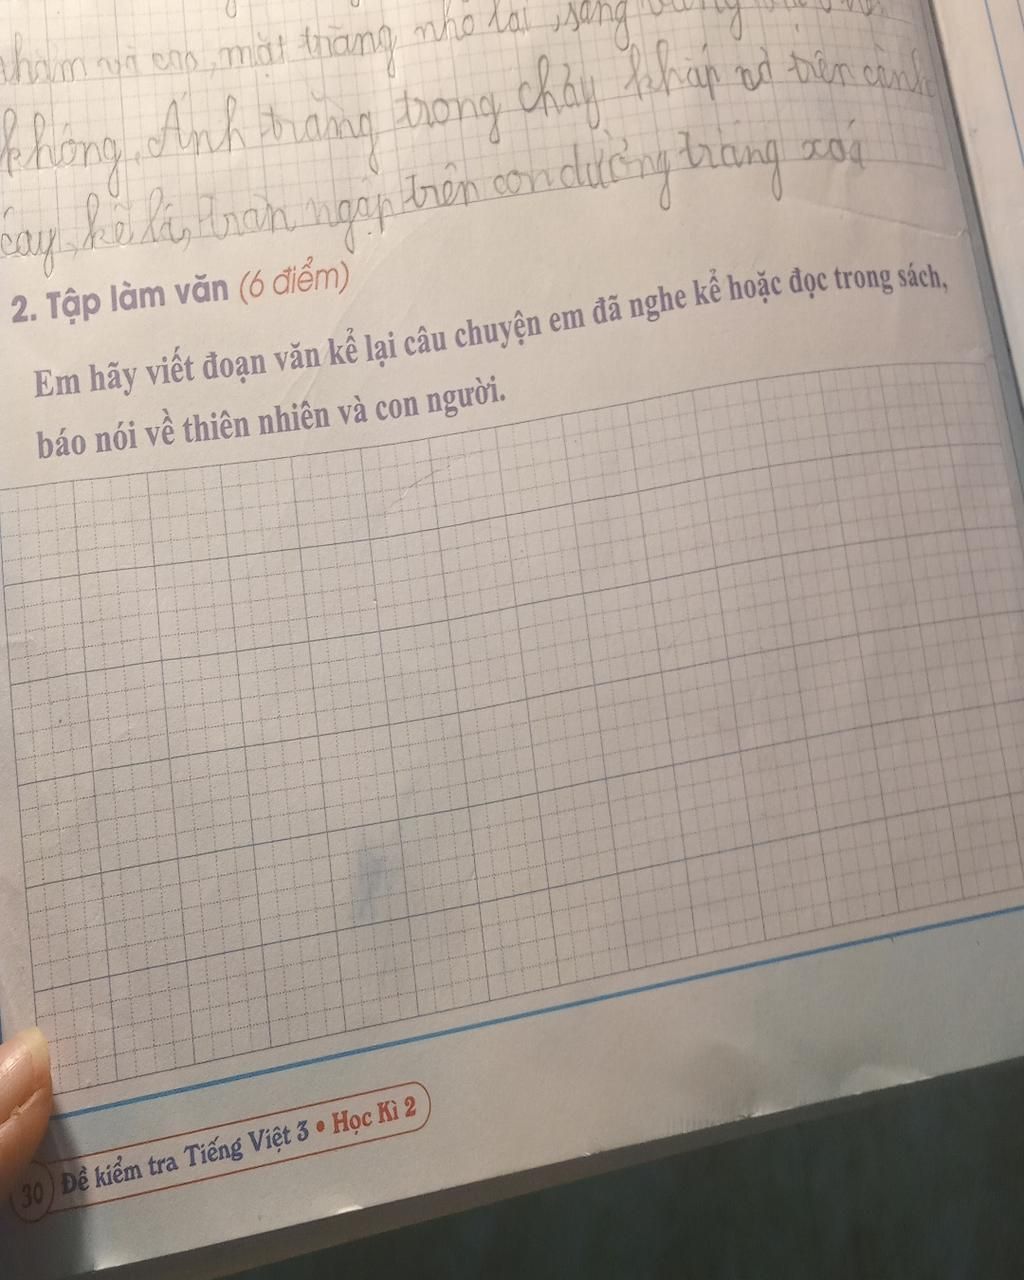 và cao, mặt trăng nhỏ lại, sáng
không. Ánh trăng trong chảy khắp cả trên cành
cây, kẽ lá, tràn ngập trên con đường trắng xoá
2. Tập làm văn (6 điểm)
Em hãy viết đoạn văn kể lại câu chuyện em đã nghe kể hoặc đọc trong sách,
báo nói về thiên nhiên và con người.
30 Đề kiểm tra Tiếng Việt 3 • Học Kì 2